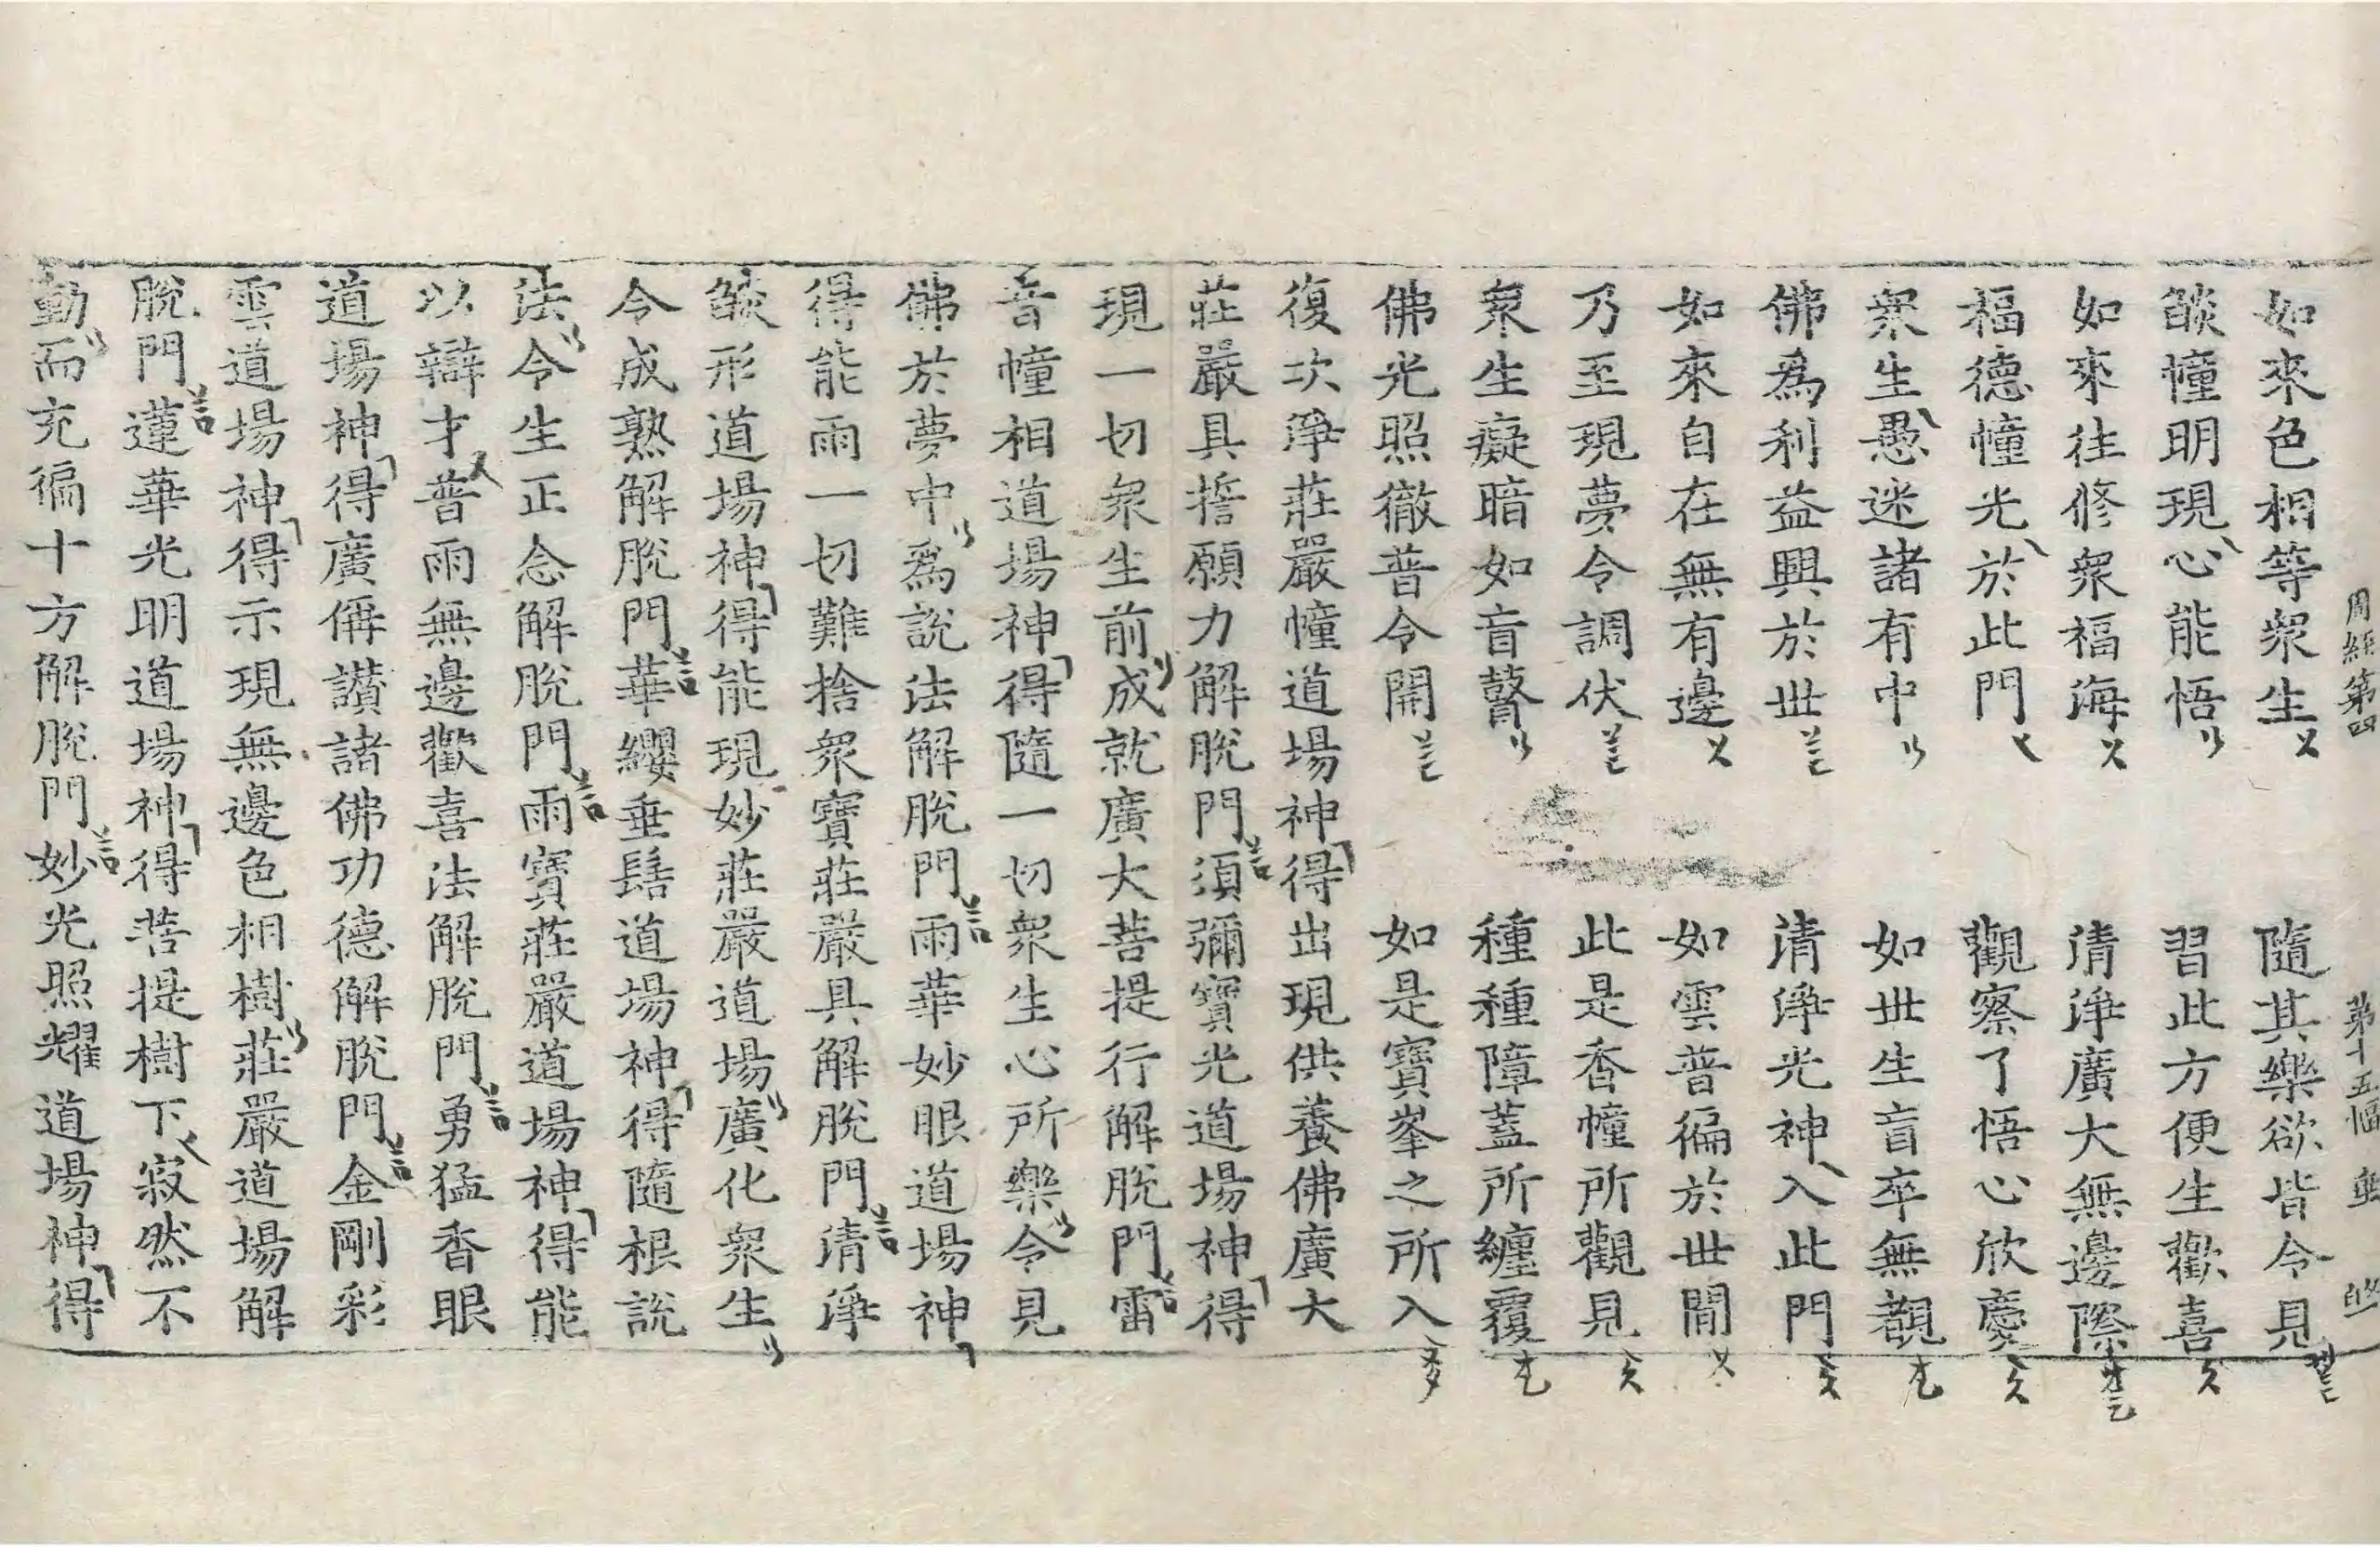 周經第四 第十五幅
如來色相等衆生 隨其樂欲皆令見
燄幢明現心能悟 習此方便生歡喜
如來往修衆福海 清淨廣大無邊際
福德幢光於此門 觀察了悟心欣慶
衆生愚迷諸有中 如世生盲卒無覩
佛爲利益興於世 清淨光神入此門
如來自在無有邊 如雲普徧於世間
乃至現夢令調伏 此是香幢所觀見
衆生癡暗如盲瞽 種種障蓋所纏覆
佛光照徹普令開 如是寶峯之所入
復次淨莊嚴幢道場神得出現供養佛廣大
莊嚴具誓願力解脫門須彌寶光道場神得
現一切衆生前成就廣大菩提行解脫門雷
音幢相道場神得隨一切衆生心所樂令見
佛於夢中爲說法解脫門雨華妙眼道場神
得能雨一切難捨衆寶莊嚴具解脫門清淨
燄形道場神得能現妙莊嚴道場廣化衆生
令成熟解脫門華纓垂髻道場神得隨根說
法令生正念解脫門雨寶莊嚴道場神得能
以辯才普雨無邊歡喜法解脫門勇猛香眼
道場神得廣偁讃諸佛功德解脫門金剛彩
雲道場神得示現無邊色相樹莊嚴道場解
脫門蓮華光明道場神得菩提樹下寂然不
動而充徧十方解脫門妙光照耀道場神得